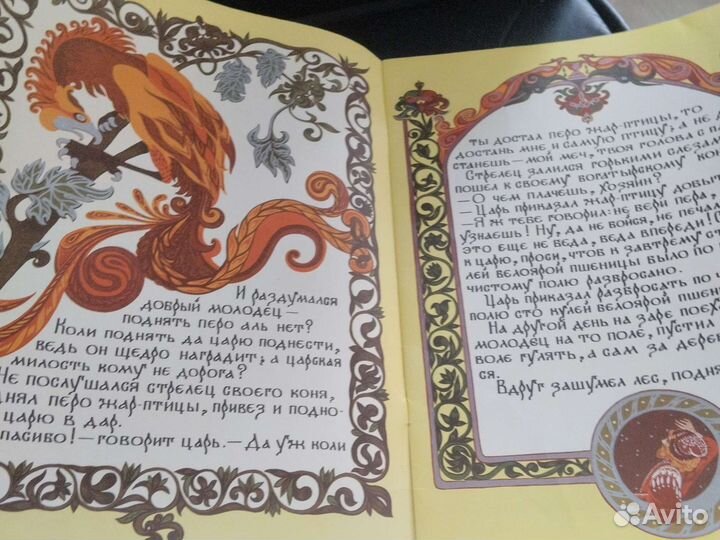 И раздумался
добрый молодец —
поднять перо аль нет?
Коли поднять да царю поднести,
ведь он щедро наградит; а царская
милость кому не дорога?
Не послушался стрелец своего коня,
перо жар-птицы, привез и
царю в дар.
— говорит царь. — Да уж коли
ты достал перо жар-птицы, то
достань мне и самую птицу; а не
— мой меч, твоя голова с
Стрелец залился горькими слезами
пошел к своему богатырскому
— О чем плачешь, хозяин?
— Царь приказал жар-птицу
— Я ж тебе говорил: не бери пера,
узнаешь! Ну, да не бойся, не
это еще не беда, беда впереди!
к царю, проси, чтоб к завтрему
лей белоярой пшеницы было по
чистому полю разбросано.
Царь приказал разбросать по
полю сто кулей белоярой
На другой день на заре
молодец на то поле, пустил
воле гулять, а сам за
ся.
Вдруг зашумел лес,
Avito